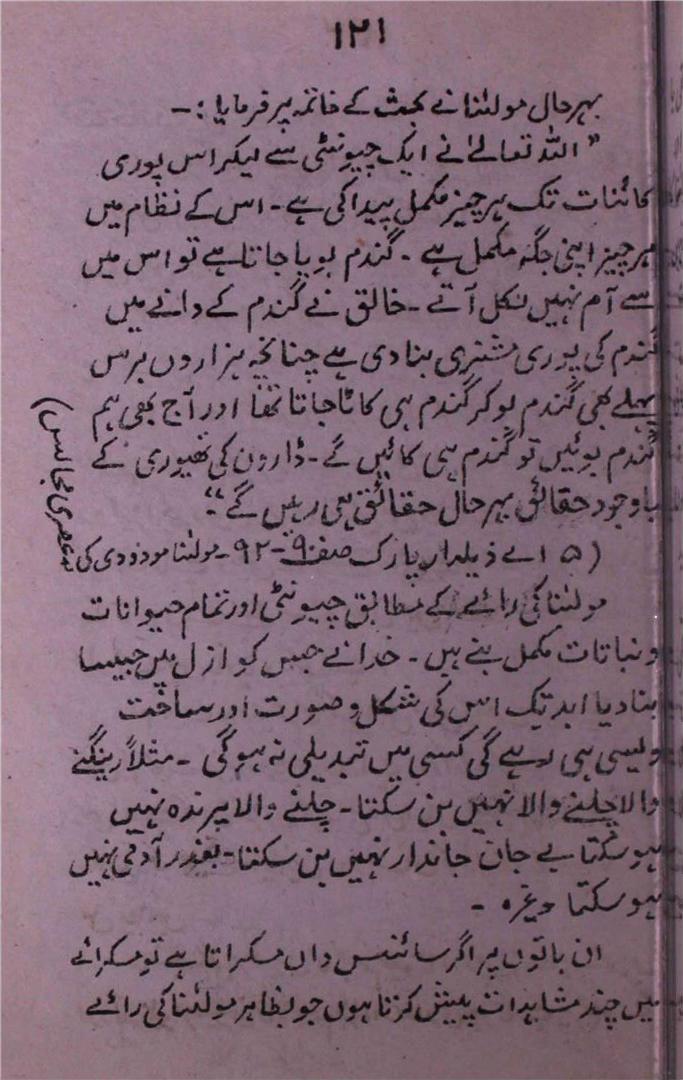 ۱۲۱
بہرحال مولٰنا نے بحث کے خاتمہ پر فرمایا :۔
” اللہ تعالےٰ نے ایک چیونٹی سے لیکر اس پوری
کائنات تک ہر چیز مکمل پیدا کی ہے ۔ اس کے نظام میں
ہر چیز اپنی جگہ مکمل ہے ۔ گندم بویا جاتا ہے تو اس میں
سے آم نہیں نکل آتے ۔ خالق نے گندم کے دانے میں
گندم کی پوری مشنری بنا دی ہے چنانچہ ہزاروں برس
پہلے بھی گندم بو کر گندم ہی کاٹا جاتا تھا اور آج بھی ہم
گندم بوئیں تو گندم ہی کاٹیں گے ۔ ڈارون کی تھیوری کے
باوجود حقائق بہرحال حقائق ہی رہیں گے “
( ۵ اے ذیلدار پارک صفہ ۹ ۔ ۹۲ ۔ مولٰنا مودودی کی
عصری مجالس )
مولٰنا کی رائے کے مطابق چیونٹی اور تمام حیوانات
و نباتات مکمل بنے ہیں ۔ خدا نے جس کو ازل میں جیسا
بنا دیا ابد تک اس کی شکل و صورت اور ساخت
ویسی ہی رہے گی کسی میں تبدیلی نہ ہوگی ۔ مثلاً رینگنے
والا چلنے والا نہیں بن سکتا ۔ چلنے والا پرندہ نہیں
ہو سکتا بے جان جاندار نہیں بن سکتا ۔ بندر آدمی نہیں
ہو سکتا وغیرہ ۔
ان باتوں پر اگر سائنس داں مسکراتا ہے تو مسکرائے
میں چند مشاہدات پیش کرتا ہوں جو بظاہر مولٰنا کی رائے